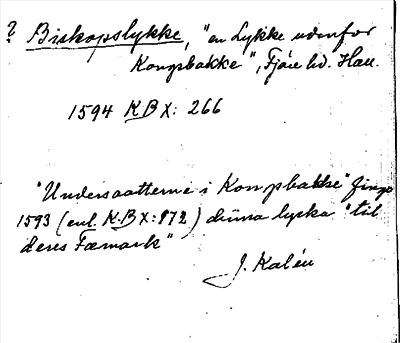 ? Biskopslykke, "en Lykke udenfor
Kongsbakke", Fjäre hd. Hall.
1594 KB X: 266
"Undersaatterne i Kongsbakke" fingo
1593 (enl. K.B X: 872) denna lycka "til
deres Fæmark"
J. Kalén